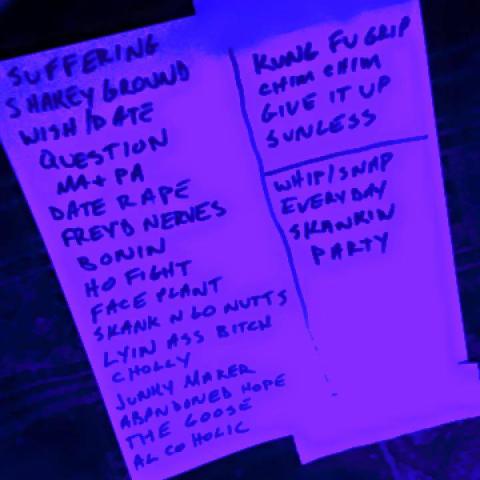 SUFFERING
SHAKEY GROUND
WISH I'D ATE
QUESTION
MA + PA
DATE RAPE
FREY'D NERVES
BONIN
HO FIGHT
FACE PLANT
SKANK N GO NUTTS
LYIN ASS BITCH
CHOLLY
JUNKY MAKER
ABANDONED HOPE
THE GOOSE
ALCOHOLIC
KUNG FU GRIP
CHIM CHIM
GIVE IT UP
SUNLESS
WHIP/SNAP
EVERYDAY
SKANKIN
PARTY